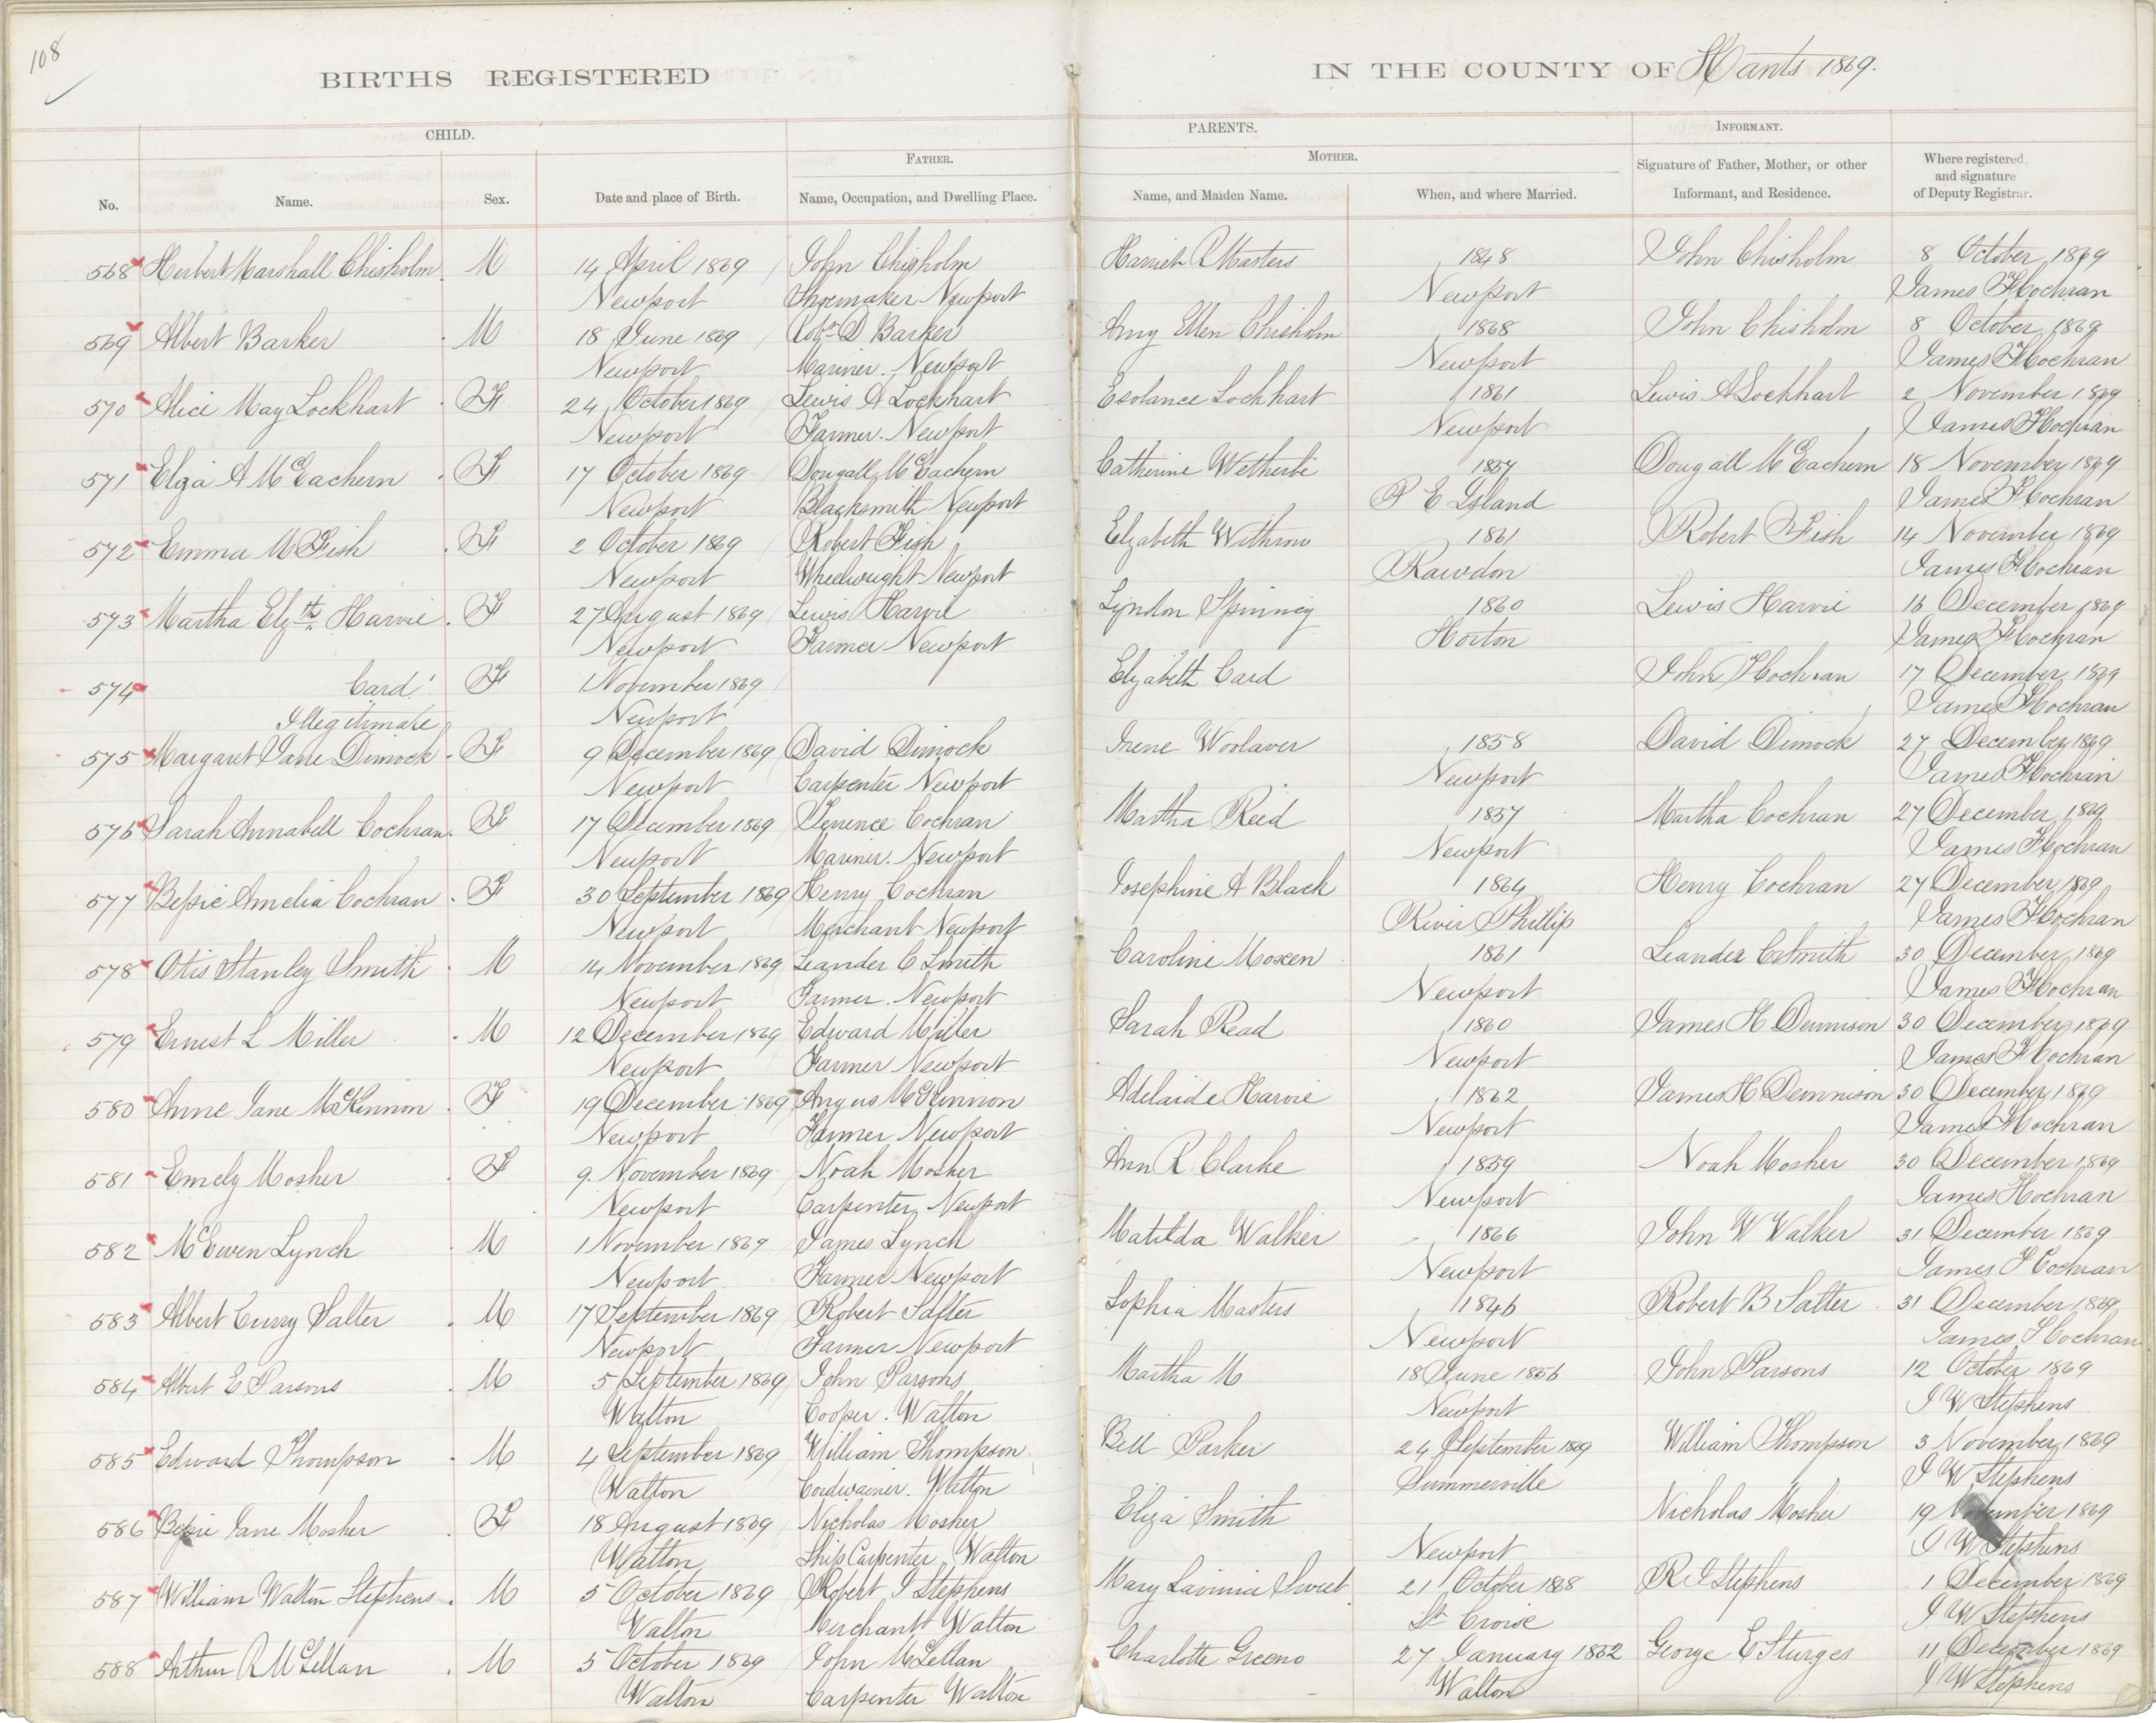 108
BIRTHS REGISTERED IN THE COUNTY OF Hants 1869.
CHILD. PARENTS. INFORMANT.
FATHER. MOTHER.
No. Name. Sex. Date and place of Birth. Name, Occupation, and Dwelling Place. Name, and Maiden Name. When, and where Married. Signature of Father, Mother, or other Informant, and Residence. Where registered, and signature of Deputy Registrar.
568 Herbert Marshall Chisholm M 14 April 1869 John Chisholm Harriet R Masters 1848 John Chisholm 8 October 1869
Newport Shoemaker Newport Newport James F Cochran
569 Albert Barker M 18 June 1869 Robt D Barker Amy Ellen Chisholm 1868 John Chisholm 8 October 1869
Newport Mariner. Newport Newport James F Cochran
570 Alice May Lockhart F 24 October 1869 Lewis A Lockhart Lockhart 1861 Lewis A Lockhart 2 November 1869
Newport Farmer. Newport Newport James F Cochran
571 Eliza A McEachern F 17 October 1869 Dougall McEachern Catherine Wetherbi 1857 Dougall McEachern 18 November 1869
Newport Blacksmith Newport P E Island James F Cochran
572 Emma M Fish F 2 October 1869 Robert Fish Elizabeth Withrow 1861 Robert Fish 14 November 1869
Newport Wheelwright Newport Rawdon James F Cochran
573 Martha Elzth Harvie F 27 August 1869 Lewis Harvie Lyndon Spinney 1860 Lewis Harvie 16 December 1869
Newport Farmer Newport Horton James F Cochran
574 Card F 1 November 1869 Elizabeth Card John F Cochran 17 December 1869
Illegitimate Newport James F Cochran
575 Margaret Jane Dimock F 9 December 1869 David Dimock Irene Woolaver 1858 David Dimock 27 December 1869
Newport Carpenter Newport Newport James F Cochran
576 Sarah Annabell Cochran F 17 December 1869 Terrence Cochran Martha Reid 1857 Martha Cochran 27 December 1869
Newport Mariner. Newport Newport James F Cochran
577 Bessie Amelia Cochran F 30 September 1869 Henry Cochran Josephine A Black 1864 Henry Cochran 27 December 1869
Newport Merchant Newport River Phillip James F Cochran
578 Otis Stanley Smith M 14 November 1869 Leander C Smith Caroline Moxen 1861 Leander C Smith 30 December 1869
Newport Farmer. Newport Newport James F Cochran
579 Ernest L Miller M 12 December 1869 Edward Miller Sarah Read 1860 James H Dennison 30 December 1869
Newport Farmer Newport Newport James F Cochran
580 Anne Jane McKinnion F 19 December 1869 Angus McKinnion Adelaide Harvie 1862 James H Dennison 30 December 1869
Newport Farmer Newport Newport James F Cochran
581 Emely Mosher F 9 November 1869 Noah Mosher Ann R Clarke 1859 Noah Mosher 30 December 1869
Newport Carpenter Newport Newport James F Cochran
582 McEwen Lynch M 1 November 1869 James Lynch Matilda Walker 1866 John W Walker 31 December 1869
Newport Farmer Newport Newport James F Cochran
583 Albert Curry Salter M 17 September 1869 Robert Salter Sophia Masters 1846 Robert B Salter 31 December 1869
Newport Farmer Newport Newport James F Cochran
584 Albert E Parsons M 5 September 1869 John Parsons Martha M 18 June 1856 John Parsons 12 October 1869
Walton Cooper. Walton Newport J W Stephens
585 Edward Thompson M 4 September 1869 William Thompson Bell Parker 24 September 1869 William Thompson 3 November 1869
Walton Cordwainer. Walton Summerville J W Stephens
586 Bessie Jane Mosher F 18 August 1869 Nicholas Mosher Eliza Smith Nicholas Mosher 19 November 1869
Walton Ship Carpenter Walton Newport J W Stephens
587 William Walton Stephens M 5 October 1869 Robert J Stephens Mary Lavinia Sweet 21 October 1868 R J Stephens 1 December 1869
Walton Merchant Walton St Croix J W Stephens
588 Arthur R McLellan M 5 October 1869 John McLellan Charlotte Greeno 27 January 1862 George E Sturges 11 December 1869
Walton Carpenter Walton Walton J W Stephens